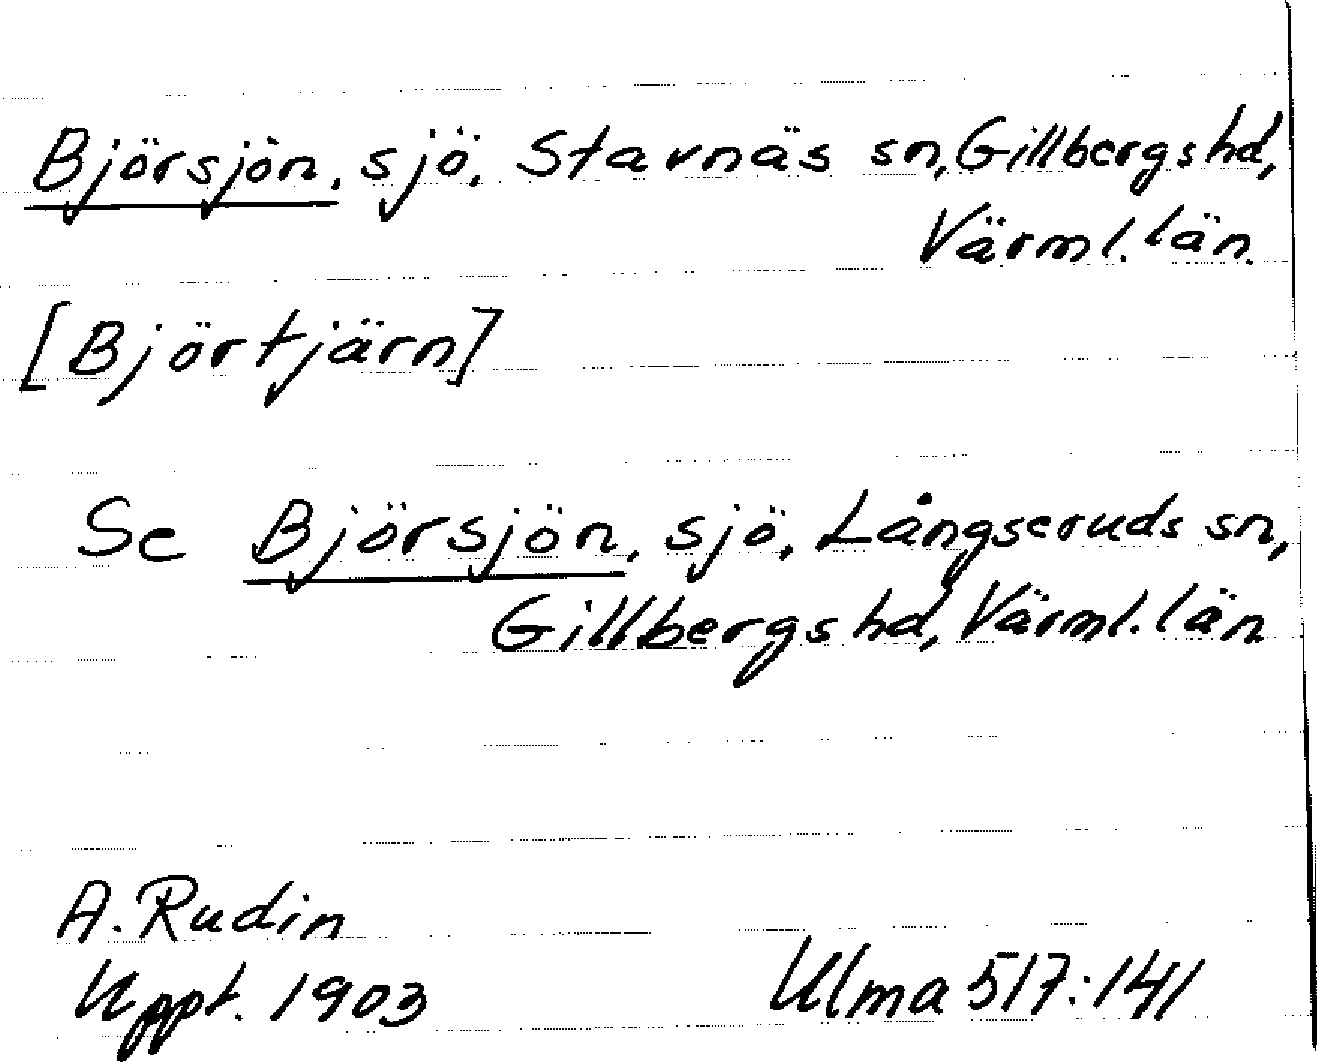 Björsjön, sjö, Stavnäs sn, Gillbergs hd,
Värml. län
[Björtjärn]
Se Björsjön, sjö, Långseruds sn,
Gillbergs hd, Värml. län
A. Rudin
Uppt. 1903
Ulma 517:141